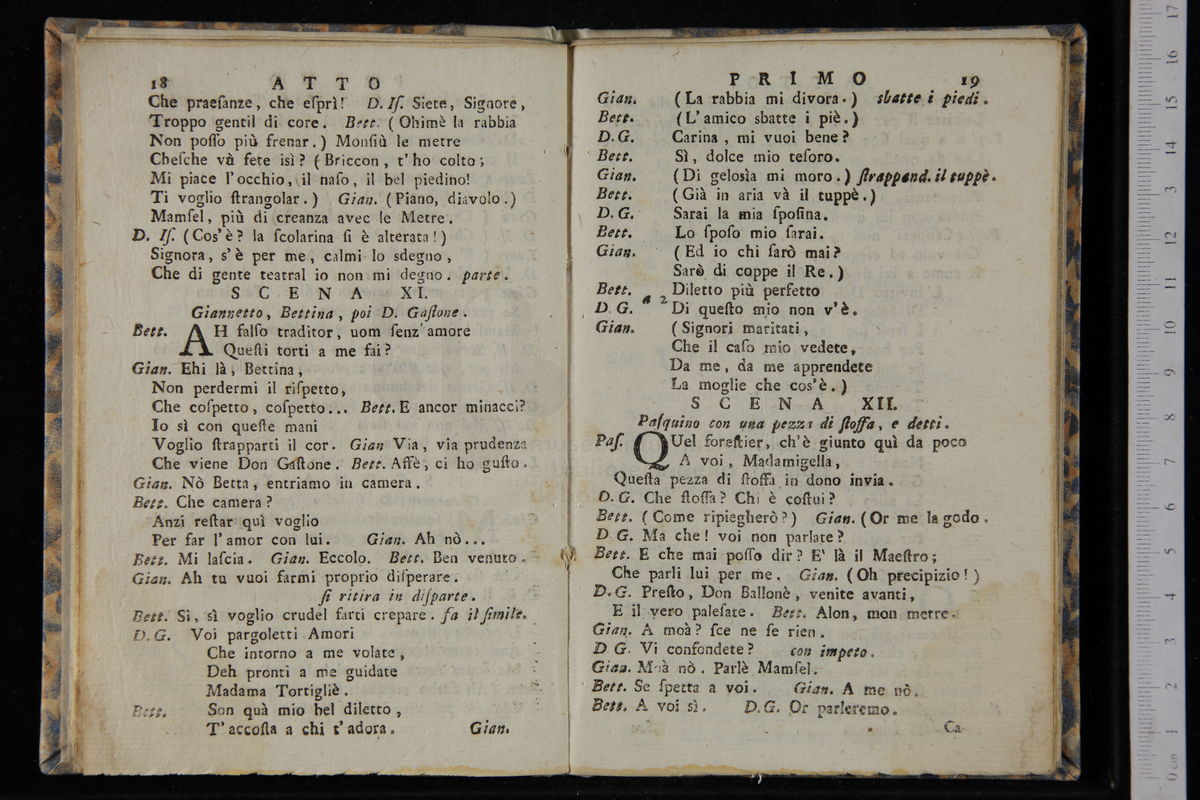 18 A T T O
Che praeſanze, che eſprì! D. Iſ. Siete, Signore,
Troppo gentil di core. Bett. (Ohimè la rabbia
Non poſſo più frenar.) Monſiù le metre
Cheſche vù fete isì? (Briccon, t'ho colto;
Mi piace l'occhio, il naſo, il bel piedino!
Ti voglio ſtrangolar.) Gian. (Piano, diavolo.)
Mamſel, più di creanza avec le Metre.
D. Iſ. (Cos'è? la ſcolarina ſi è alterata!)
Signora, s'è per me, calmi lo sdegno,
Che di gente teatral io non mi degno. parte.
S C E N A XI.
Giannetto, Bettina, poi D. Gaſtone.
Bett. AH falſo traditor, uom ſenz'amore
Queſti torti a me fai?
Gian. Ehi là, Bettina,
Non perdermi il riſpetto,
Che coſpetto, coſpetto... Bett. E ancor minacci?
Io sì con queſte mani
Voglio ſtrapparti il cor. Gian Via, via prudenza
Che viene Don Gaſtone. Bett. Affè, ci ho guſto.
Gian. Nò Betta, entriamo in camera.
Bett. Che camera?
Anzi reſtar quì voglio
Per far l'amor con lui. Gian. Ah nò...
Bett. Mi laſcia. Gian. Eccolo. Bett. Ben venuto.
Gian. Ah tu vuoi farmi proprio diſperare.
ſi ritira in diſparte.
Bett. Si, sì voglio crudel farti crepare. fa il ſimile.
D.G. Voi pargoletti Amori
Che intorno a me volate,
Deh pronti a me guidate
Madama Tortigliè.
Bett. Son quà mio bel diletto,
T'accoſta a chi t'adora. Gian.
P R I M O 19
Gian. (La rabbia mi divora.) sbatte i piedi.
Bett. (L'amico sbatte i piè.)
D.G. Carina, mi vuoi bene?
Bett. Sì, dolce mio teſoro.
Gian. (Di gelosìa mi moro.) ſtrappand. il tuppè.
Bett. (Già in aria và il tuppè.)
D.G. Sarai la mia ſpoſina.
Bett. Lo ſpoſo mio ſarai.
Gian. (Ed io chi ſarò mai?
Sarò di coppe il Re.)
Bett. Diletto più perfetto
D.G. a 2 Di queſto mio non v'è.
Gian. (Signori maritati,
Che il caſo mio vedete,
Da me, da me apprendete
La moglie che cos'è.)
S C E N A XII.
Paſquino con una pezza di ſtoffa, e detti.
Paſ. QUel foreſtier, ch'è giunto quì da poco
A voi, Madamigella,
Queſta pezza di ſtoffa in dono invia.
D.G. Che ſtoffa? Chi è coſtui?
Bett. (Come ripiegherò?) Gian. (Or me la godo.
D G. Ma che! voi non parlate?
Bett. E che mai poſſo dir? E' là il Maeſtro;
Che parli lui per me. Gian. (Oh precipizio!)
D.G. Preſto, Don Ballonè, venite avanti,
E il vero paleſate. Bett. Alon, mon metre.
Gian. A moà? ſce ne ſe rien.
D G. Vi confondete? con impeto.
Gian. Moà nò. Parlè Mamſel.
Bett. Se ſpetta a voi. Gian. A me nò.
Bett. A voi sì. D.G. Or parleremo.
Ca-